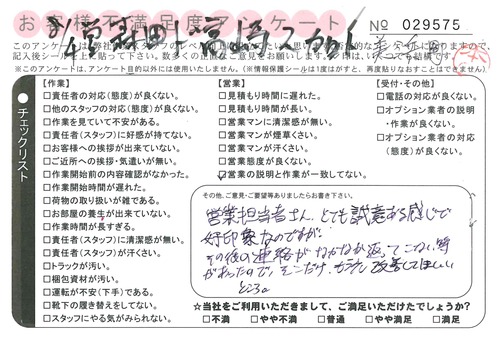 お客様不満足度アンケート
No 029575
このアンケートは
記入後シール
※このアンケートは、アンケート目的以外には使用いたしません。(※情報保護シールは1度はがすと、再度貼りなおすことはできません)
チェックリスト
【作業】
□責任者の対応(態度)が良くない。
□他のスタッフの対応(態度)が良くない。
□作業を見ていて不安がある。
□責任者(スタッフ)に好感が持てない。
□お客様への挨拶が出来ていない。
□ご近所への挨拶・気遣いが無い。
□作業開始前の内容確認がなかった。
□作業開始時間が遅れた。
□荷物の取り扱いが雑である。
□お部屋の養生が出来ていない。
□作業時間が長すぎる。
□責任者(スタッフ)に清潔感が無い。
□責任者(スタッフ)が汗くさい。
□トラックが汚い。
□梱包資材が汚い。
□運転が不安(下手)である。
□靴下の履き替えをしてない。
□スタッフにやる気がみられない。
【営業】
□見積もり時間に遅れた。
□見積もり時間が長い。
□営業マンに清潔感が無い。
□営業マンが煙草くさい。
□営業マンが汗くさい。
□営業態度が良くない。
□営業の説明と作業が一致してない。
【受付・その他】
□電話の対応が良くない。
□オプション業者の説明
・作業が良くない。
□オプション業者の対応
(態度)が良くない。
その他、ご意見・ご要望等ありましたらお書き下さい。
営業担当者さん、とても誠意ある感じで
好印象なのですが、
その後の連絡がなかなか返ってこない等
があったので、そこだけ 改善してほしい
ところ。
☆当社をご利用いただきまして、ご満足いただけたでしょうか?
□不満 □やや不満 □普通 □やや満足 □満足